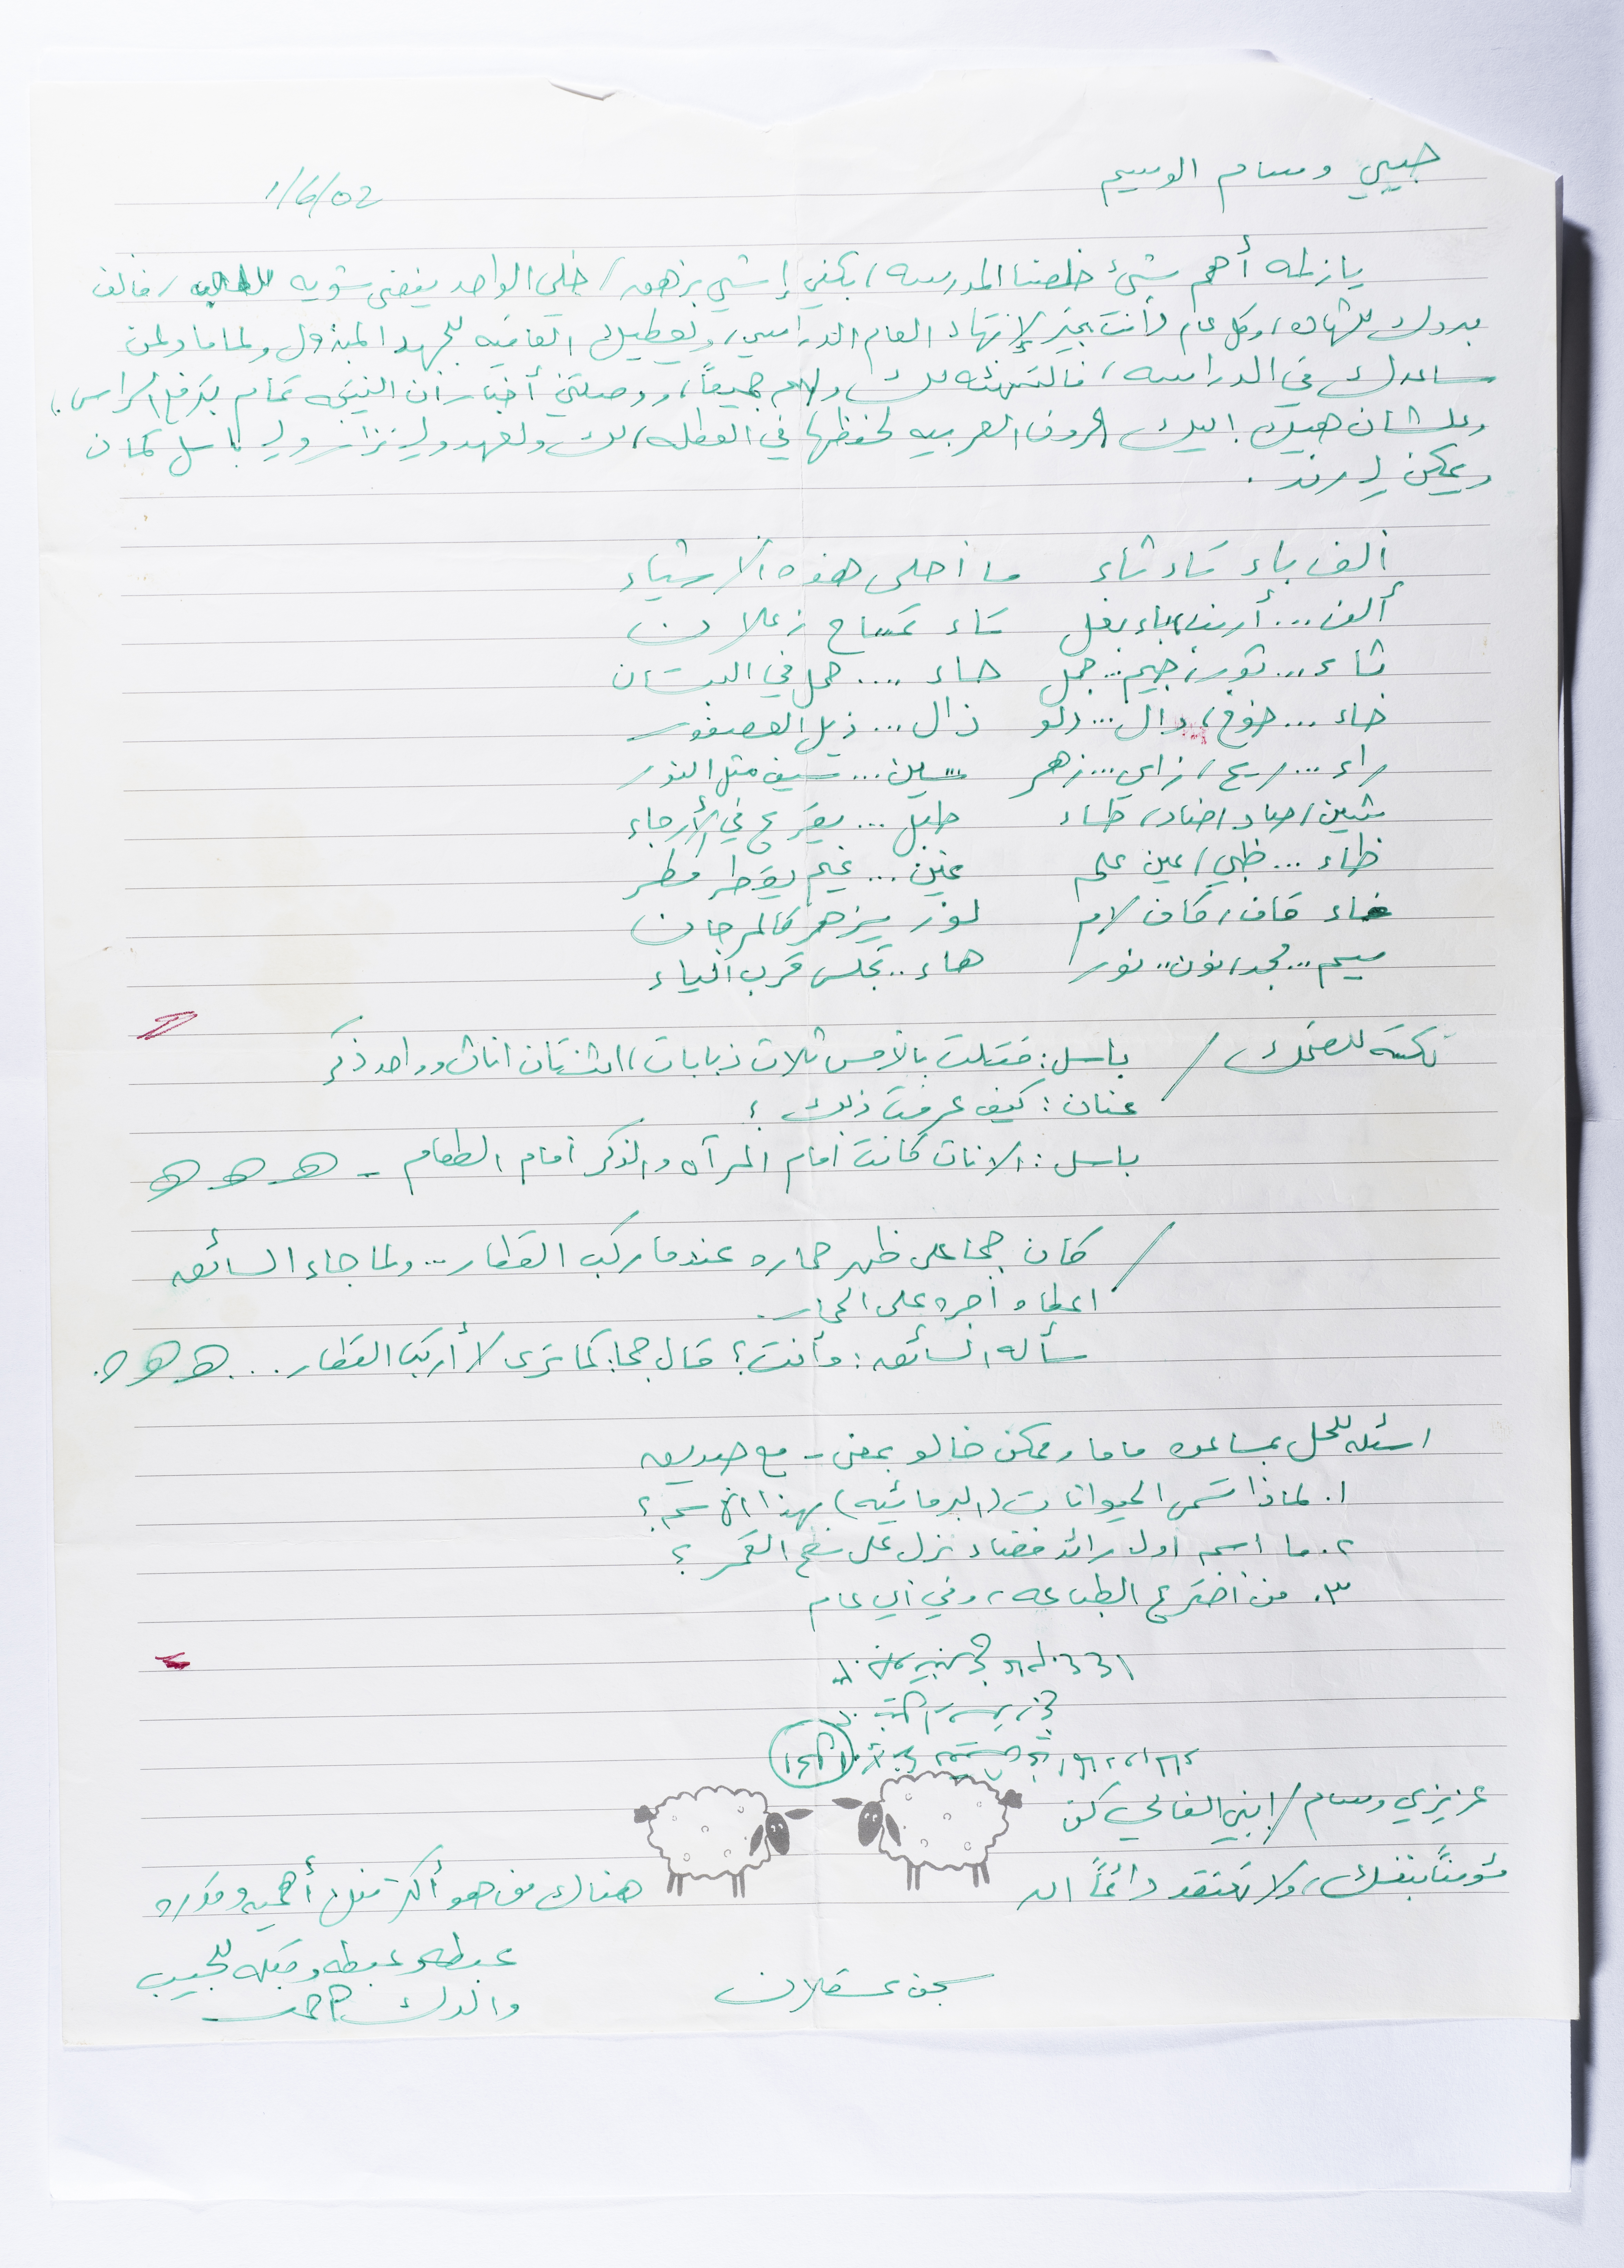 حبيبي وسام الوسيم
1/6/02
يا زلمه أهم شيئ خلصنا المدرسه، بكفي إشي بزهق، خلي الواحد يفضى شويه للعب، فألف
مبروك للشهاده، وكل عام وأنت بخير لإنتهاء العام الدراسي، ويعطيك العافيه للجهد المبذول ولماما ولمن
ساعدك في الدراسه، فالتهنئه لك ولهم جميعاً، ووصلتني أخبار أن النتيجه تمام بترفع الراس.
وعلشان هيك، اليك الحروف العربيه لحفظها في العطله، لك ولعهد ولـ نزار ولـ باسل كمان
ويمكن لـ رند.
ألف باء تاء ثاء ما أحلى هذه الأشياء
ألف... أرنب، باء بغل تاء تمساح زعلان
ثاء... ثور، جيم... جمل حاء .... حمل في البستان
خاء... خوخ، دال... دلو ذال... ذيل العصفور
راء... ريح، زاي... زهر سين... سيف مثل النور
شين، صاد، ضاد، طاء طبل... يقرع في الأرجاء
ظاء... ظبي، عين علم غين... غيم يقطر مطر
فاء قاف، كاف لام لوز يزهر كالمرجان
ميم... مجد، نون.. نور هاء.. تجلس قرب الياء
نكته للضحك / باسل: قتلت بالأمس ثلاث ذبابات، اثنتان اناث وواحد ذكر
عنان: كيف عرفت ذلك؟
باسل: الاناث كانت أمام المرآه والذكر أمام الطعام - هـ هـ هـ
/ كان جحا على ظهر حماره عندما ركب القطار... ولما جاء السائق
اعطاه أجره على الحمار.
سأله السائق: وأنت؟ قال جحا: كما ترى لا أركب القطار... هـ هـ هـ.
اسئله للحل بمساعده ماما وممكن خالو بعض - مع صديق
١. لماذا تسمى الحيوانات (البرمائيه) بهذا الاسم؟
٢. ما اسم اول رائد فضاء نزل على سطح القمر؟
٣. من أخترع الطباعه، وفي أي عام
عزيزي وسام / ابني الغالي كن
مؤمناً بنفسك، ولا تعتقد دائماً ان
هناك من هو أكثر منك أهميه وقدره
عبطه وعبطه وقبله للحبيب
سجن عسقلان
والدك